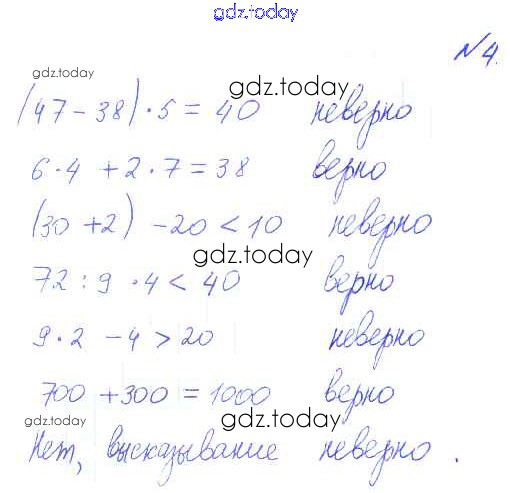 gdz.today
№ 4.
gdz.today
gdz.today
(47 - 38) · 5 = 40 неверно
6 · 4 + 2 · 7 = 38 верно
(30 + 2) - 20 < 10 неверно
gdz.today
72 : 9 · 4 < 40 верно
9 · 2 - 4 > 20 неверно
700 + 300 = 1000 верно
gdz.today
gdz.today
Нет, высказывание неверно.